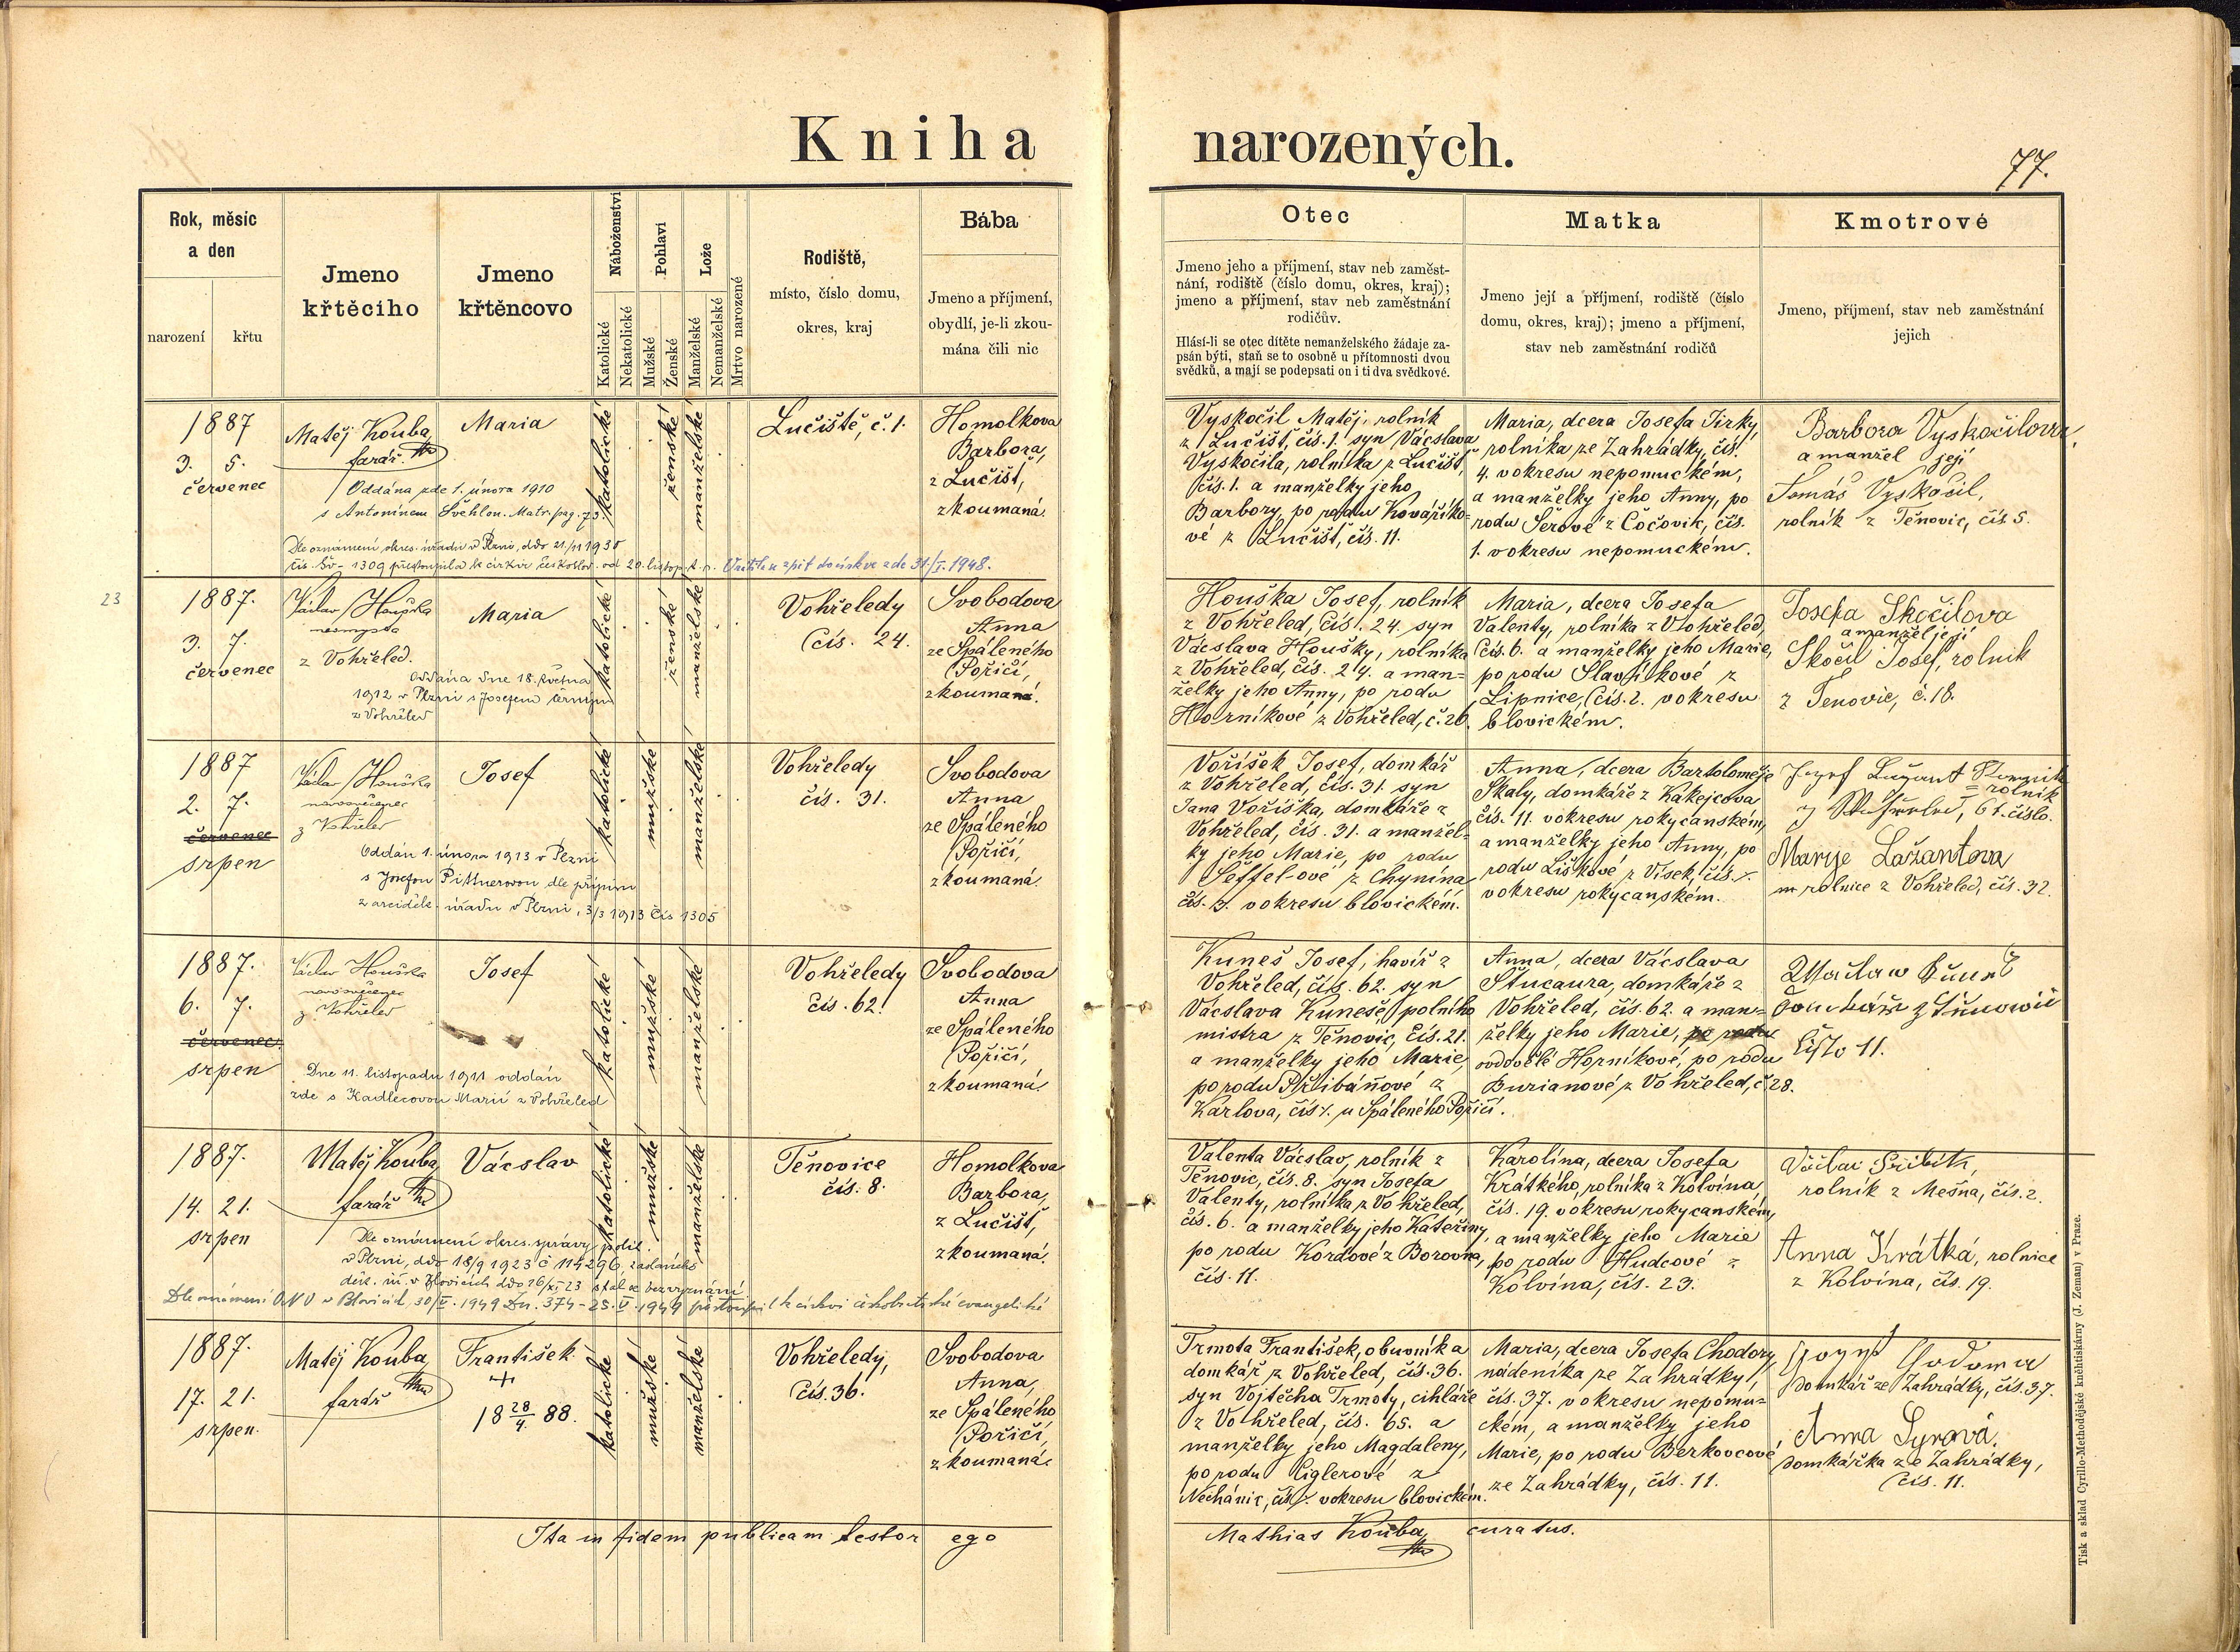 Kniha narozených.
77.
Rok, měsíc
a den
narození
křtu
Jmeno
křtěcího
Jmeno
křtěncovo
Náboženství
Katolické
Nekatolické
Pohlaví
Mužské
Ženské
Lože
Manželské
Nemanželské
Mrtvo narozené
Rodiště,
místo, číslo domu,
okres, kraj
Bába
Jmeno a příjmení,
obydlí, je-li zkou-
mána čili nic
Otec
Jmeno jeho a příjmení, stav neb zaměst-
nání, rodiště (číslo domu, okres, kraj);
jmeno a příjmení, stav neb zaměstnání
rodičův.
Hlásí-li se otec dítěte nemanželského žádaje za-
psán býti, staň se to osobně u přítomnosti dvou
svědků, a mají se podepsati on i ti dva svědkové.
Matka
Jmeno její a příjmení, rodiště (číslo
domu, okres, kraj); jmeno a příjmení,
stav neb zaměstnání rodičů
Kmotrové
Jmeno, příjmení, stav neb zaměstnání
jejich
1887
3. 5.
červenec
Matěj Kouba,
farář
Maria
Oddána zde 1. února 1910
s Antonínem Švehlou. Matr. pag. 73.
Dle oznámení okres. úřadu v Plzni, ddo 21/11 1930
čís. 1309 přestoupila k církvi českoslov. od 20. listop. t. r. Vrátila zpět do církve zde 31/I. 1948.
katolické
ženské
manželské
Lučiště, č. 1.
Homolkova
Barbora,
z Lučišť,
zkoumaná.
Vyskočil Matěj, rolník
z Lučišť, čís. 1. syn Vácslava
Vyskočila, rolníka z Lučišť,
čís. 1. a manželky jeho
Barbory, po rodu Kováříko-
vé z Lučišť, čís. 11.
Maria, dcera Josefa Jirky,
rolníka ze Zahrádky, čís.
4. v okresu nepomuckém,
a manželky jeho Anny, po
rodu Šerové z Čočovic, čís.
1. v okresu nepomuckém.
Barbora Vyskočilova,
a manžel její
Tomáš Vyskočil,
rolník z Těnovic, čís 5.
23
1887.
3. 7.
červenec
Václav Houška
z Vohřeled.
Maria
Oddána dne 18. května
1912 v Plzni s Josefem Černým
z Vohřeled
katolické
ženské
manželské
Vohřeledy
čís. 24.
Svobodova
Anna
ze Spáleného
Poříčí,
zkoumaná.
Houška Josef, rolník
z Vohřeled, čís. 24. syn
Vácslava Houšky, rolníka
z Vohřeled, čís. 24. a man-
želky jeho Anny, po rodu
Horníkové z Vohřeled, č. 26.
Maria, dcera Josefa
Valenty, rolníka z Vohřeled,
čís. 6. a manželky jeho Marie,
po rodu Slavíkové z
Lipnice, čís. 2. v okresu
blovickém.
Josefa Skočilova
a manžel její
Skočil Josef, rolník
z Tenovic, č. 18.
1887
2. 7.
červenec
srpen
Václav Houška
novosvěcenec
z Vohřeled
Josef
Oddán 1. února 1913 v Plzni
s Josefou Pittnerovou dle přípisu
z arciděk. úřadu v Plzni, 3/3 1913 čís 1305
katolické
mužské
manželské
Vohřeledy
čís. 31.
Svobodova
Anna
ze Spáleného
Poříčí,
zkoumaná.
Voříšek Josef, domkář
z Vohřeled, čís. 31. syn
Jana Voříška, domkáře z
Vohřeled, čís. 31. a manžel-
ky jeho Marie, po rodu
Šeffel-ové z Chynína
čís. 3. v okresu blovickém.
Anna, dcera Bartoloměje
Skaly, domkáře z Kakejcova
čís. 11. v okresu rokycanském,
a manželky jeho Anny, po
rodu Liškové z Vísek, čís.
v okresu rokycanském.
rolník
čislo.
Marije Lažantova
rolnice z Vohřeled, čís. 32.
1887.
6. 7.
červenec
srpen
Václav Houška
novosvěcenec
z Vohřeled
Josef
Dne 11. listopadu 1911 oddán
zde s Kadlecovou Marií z Vohřeled
katolické
mužské
manželské
Vohřeledy
čís. 62.
Svobodova
Anna
ze Spáleného
Poříčí,
zkoumaná.
Kuneš Josef, havíř z
Vohřeled, čís. 62. syn
Vácslava Kuneše, polního
mistra z Těnovic, čís. 21.
a manželky jeho Marie,
po rodu Přibáňové z
Karlova, čís. u Spáleného Poříčí.
Anna, dcera Vácslava
Štucaura, domkáře z
Vohřeled, čís. 62. a man-
želky jeho Marie, po rodu
ovdovělé Horníkové, po rodu
Burianové z Vohřeled, č. 28.
Čislo 11.
1887.
14. 21.
srpen
Matěj Kouba,
farář
Vácslav
Dle oznámení okres. správy polit.
v Plzni, ddo 18/9 1923 č 114296,
v Blovicích ddo 16/XI 23 stal se bez vyznání.
Dle oznámení ONV v Blovicích, 30/V. 1949 přestoupil k církvi českobratrské evangelické
katolické
mužské
manželské
Těnovice
čís. 8.
Homolkova
Barbora,
z Lučišť,
zkoumaná.
Valenta Vácslav, rolník z
Těnovic, čís. 8. syn Josefa
Valenty, rolníka z Vohřeled,
čís. 6. a manželky jeho Kateřiny,
po rodu Kordové z Borovna,
čís. 11.
Karolína, dcera Josefa
Krátkého, rolníka z Kolvína,
čís. 19. v okresu rokycanském,
a manželky jeho Marie
po rodu Hudcové z
Kolvína, čís. 23.
rolník z Mešna, čís. 2.
Anna Krátká, rolnice
z Kolvína, čís. 19.
1887.
17. 21.
srpen.
Matěj Kouba,
farář
František
+
18 28/4. 88.
katolické
mužské
manželské
Vohřeledy,
čís. 36.
Svobodova
Anna,
ze Spáleného
Poříčí,
zkoumaná.
Trmota František, obuvník a
domkář z Vohřeled, čís. 36.
syn Vojtěcha Trmoty, cihláře
z Vohřeled, čís. 65. a
manželky jeho Magdaleny,
po rodu Ciglerové z
Nechánic, čís. v okresu blovickém.
Maria, dcera Josefa Chodory,
nádeníka ze Zahrádky,
čís. 37. v okresu nepomu-
ckém, a manželky jeho
Marie, po rodu Berkovcové
ze Zahrádky, čís. 11.
domkář ze Zahrádky, čís. 37.
Anna Syrová,
domkářka ze Zahrádky,
čís. 11.
Ita in fidem publicam testor ego
Mathias Kouba, curatus.
Tisk a sklad Cyrillo-Methodějské knihtiskárny (J. Zeman) v Praze.